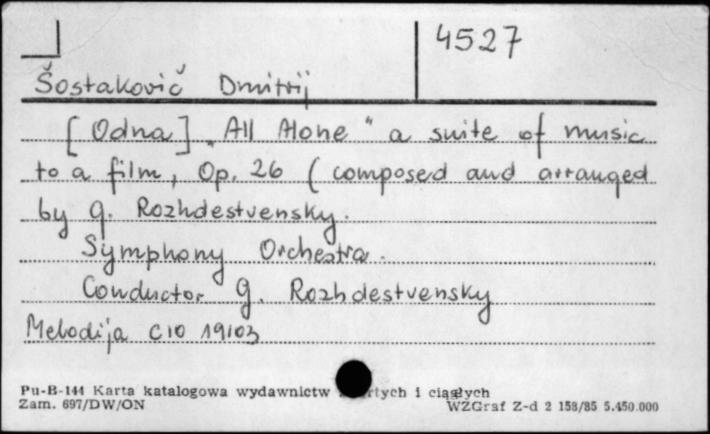 4527
Šostakovič Dmitrij
[Odna] „All Alone" a suite of music
to a film, Op. 26 (composed and arranged
by G. Rozhdestvensky.
Symphony Orchestra.
Conductor G. Rozhdestvensky
Melodija C10 19103
Pu-B-144 Karta katalogowa wydawnictw i ciągłych
Zam. 697/DW/ON WZGraf Z-d 2 158/85 5.450.000